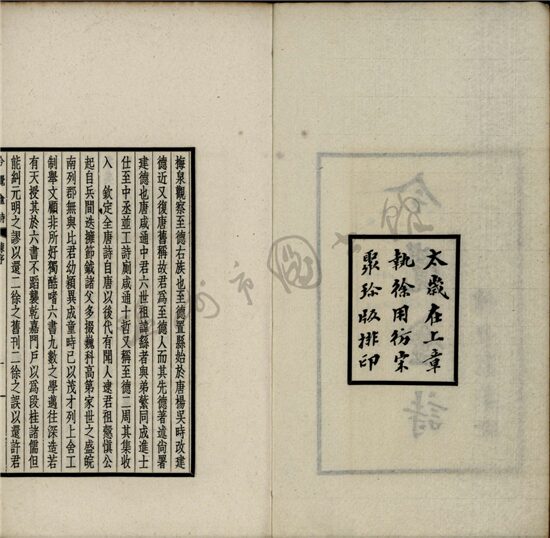 太歲在上章
執徐用仿宋
聚珍版排印
梅泉觀察至德右族也至德置縣始於唐楊吳時改建
德近又復唐舊稱故君爲至德人而其先德著述尙署
建德也唐咸通中君六世祖諱繇者與弟繁同成進士
仕至中丞並工詩廁咸通十哲又稱至德二周其集收
入　欽定全唐詩自唐以後代有聞人逮君祖愨愼公
起自兵間迭擁節鉞諸父多掇巍科高第家世之盛皖
南列郡無與比君幼穎異成童時已以茂才列上舍工
制舉文顧非所好獨酷嗜六書九數之學邁往深造若
有天授其於六書不蹈襲乾嘉門戶以爲段桂諸儒但
能糾元明之謬以還二徐之舊刊二徐之誤以還許君
今覺盦詩